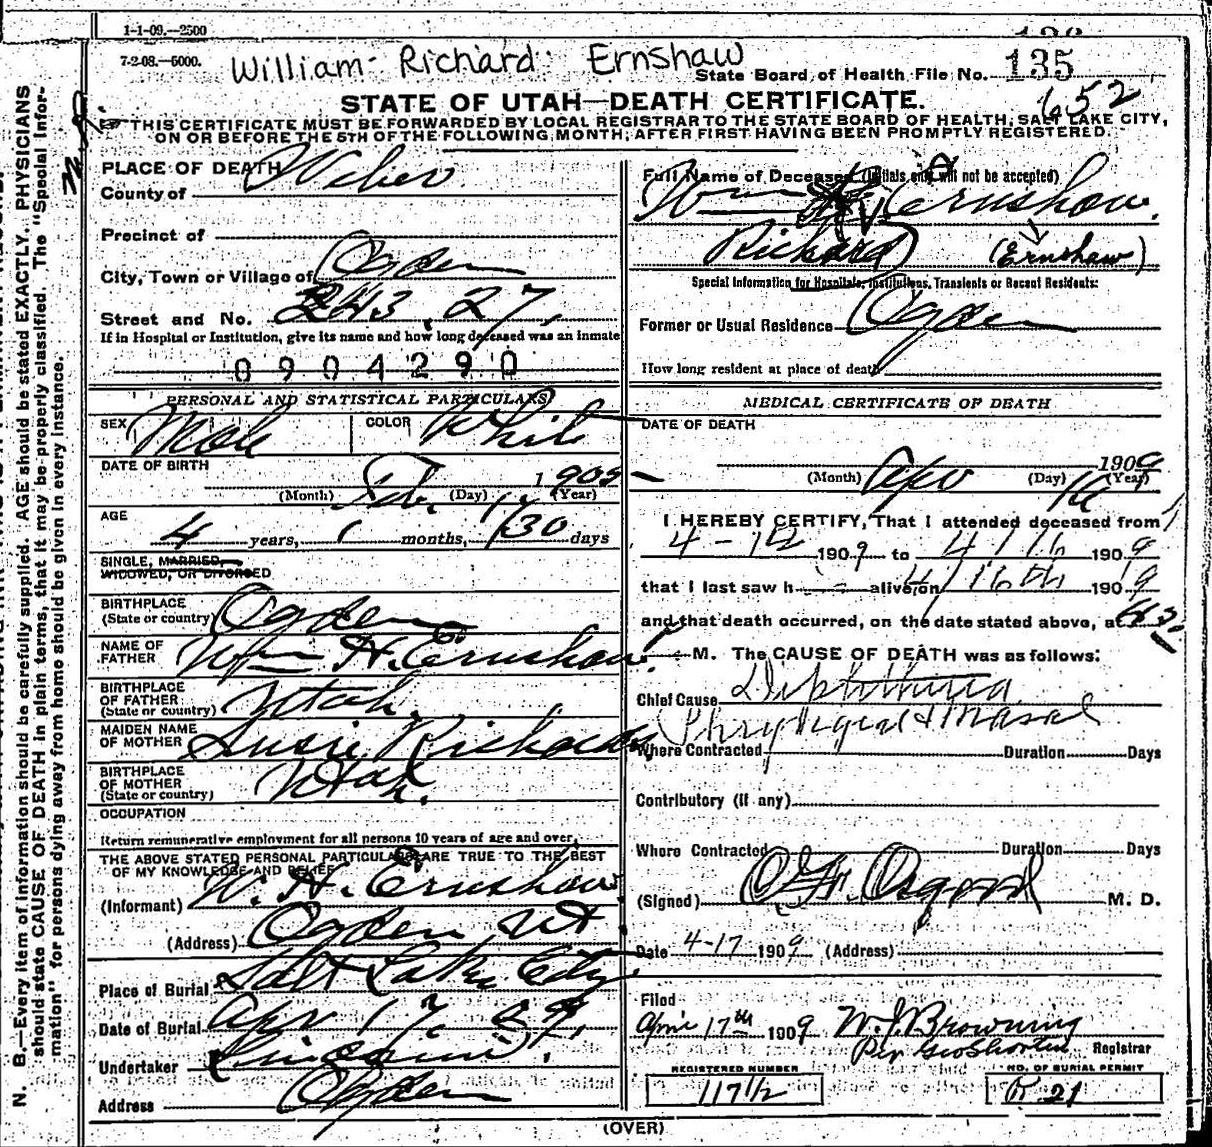 1-1-09.—2500
7-2-08.—5000.
William Richard Ernshaw
State Board of Health File No. 135
652
STATE OF UTAH—DEATH CERTIFICATE.
THIS CERTIFICATE MUST BE FORWARDED BY LOCAL REGISTRAR TO THE STATE BOARD OF HEALTH, SALT LAKE CITY,
ON OR BEFORE THE 5TH OF THE FOLLOWING MONTH, AFTER FIRST HAVING BEEN PROMPTLY REGISTERED.
N. B.—Every item of information should be carefully supplied. AGE should be stated EXACTLY. PHYSICIANS
should state CAUSE OF DEATH in plain terms, that it may be properly classified. The "Special Infor-
mation" for persons dying away from home should be given in every instance.
PLACE OF DEATH
County of Weber
Precinct of
City, Town or Village of Ogden
Street and No. 243 27
If in Hospital or Institution, give its name and how long deceased was an inmate
0904290
PERSONAL AND STATISTICAL PARTICULARS
SEX Male COLOR White
DATE OF BIRTH
(Month) Feb. (Day) (Year) 1905
AGE
4 years, 1 months, 30 days
SINGLE, MARRIED,
WIDOWED, OR DIVORCED
BIRTHPLACE
(State or country) Ogden
NAME OF
FATHER Wm H. Ernshaw
BIRTHPLACE
OF FATHER
(State or country) Utah.
MAIDEN NAME
OF MOTHER Susie Richards
BIRTHPLACE
OF MOTHER
(State or country) Utah.
OCCUPATION
Return remunerative employment for all persons 10 years of age and over.
THE ABOVE STATED PERSONAL PARTICULARS ARE TRUE TO THE BEST
OF MY KNOWLEDGE AND BELIEF
(Informant) W. H. Ernshaw
(Address) Ogden Ut.
Place of Burial Salt Lake City
Date of Burial Apr 17. 09.
Undertaker
Address Ogden
Full Name of Deceased (Initials only will not be accepted)
Wm Ernshaw.
Richard (Ernshaw)
Special Information for Hospitals, Institutions, Transients or Recent Residents:
Former or Usual Residence Ogden
How long resident at place of death
MEDICAL CERTIFICATE OF DEATH
DATE OF DEATH
(Month) Apr (Day) 16 (Year) 1909
I HEREBY CERTIFY, That I attended deceased from
4-12 1909 to 4/16 1909
that I last saw h alive on 4/16th 1909
and that death occurred, on the date stated above, at
M. The CAUSE OF DEATH was as follows:
Chief Cause Diphtheria
Phryngeal & Nasal
Where Contracted Duration Days
Contributory (if any)
Where Contracted Duration Days
(Signed) Osgood M. D.
Date 4-17 1909 (Address)
Filed
April 17th 1909 W. J. Browning
Per Geo Shorten Registrar
REGISTERED NUMBER NO. OF BURIAL PERMIT
117½ R 21
(OVER)